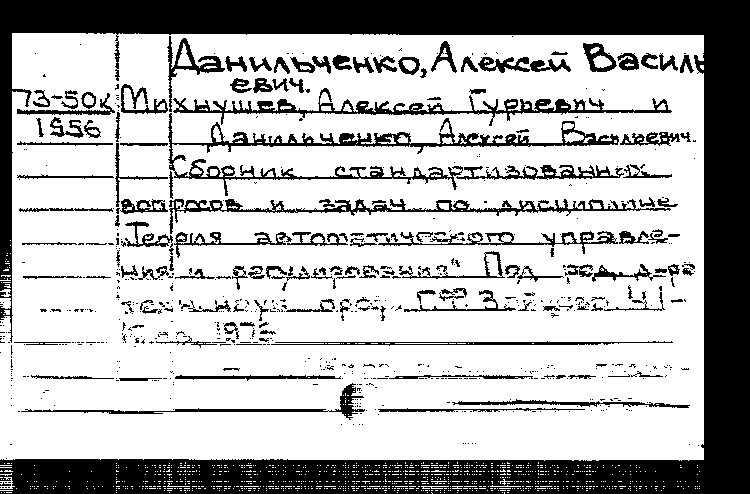 Данильченко, Алексей Василь
евич.
73-50к Михнушев, Алексей Гурьевич и
1956 Данильченко, Алексей Васильевич.
Сборник стандартизованных
вопросов и задач по дисциплине
„Теория автоматического управле-
ния и регулирования". Под ред. д-ра
техн. наук проф. Г.Ф. Зайцева Ч 1-
1975